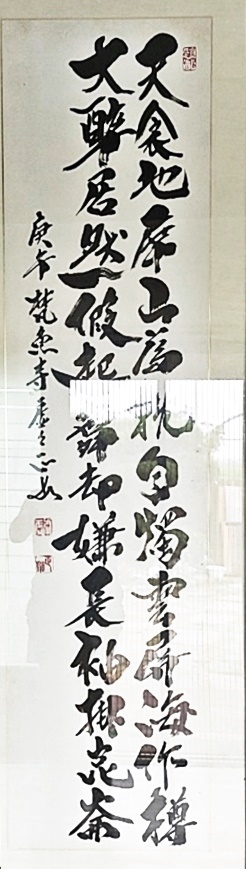 天衾地席山爲枕月燭雲屛海作樽
大醉居然起舞却嫌長袖掛崑崙
庚午梵魚寺